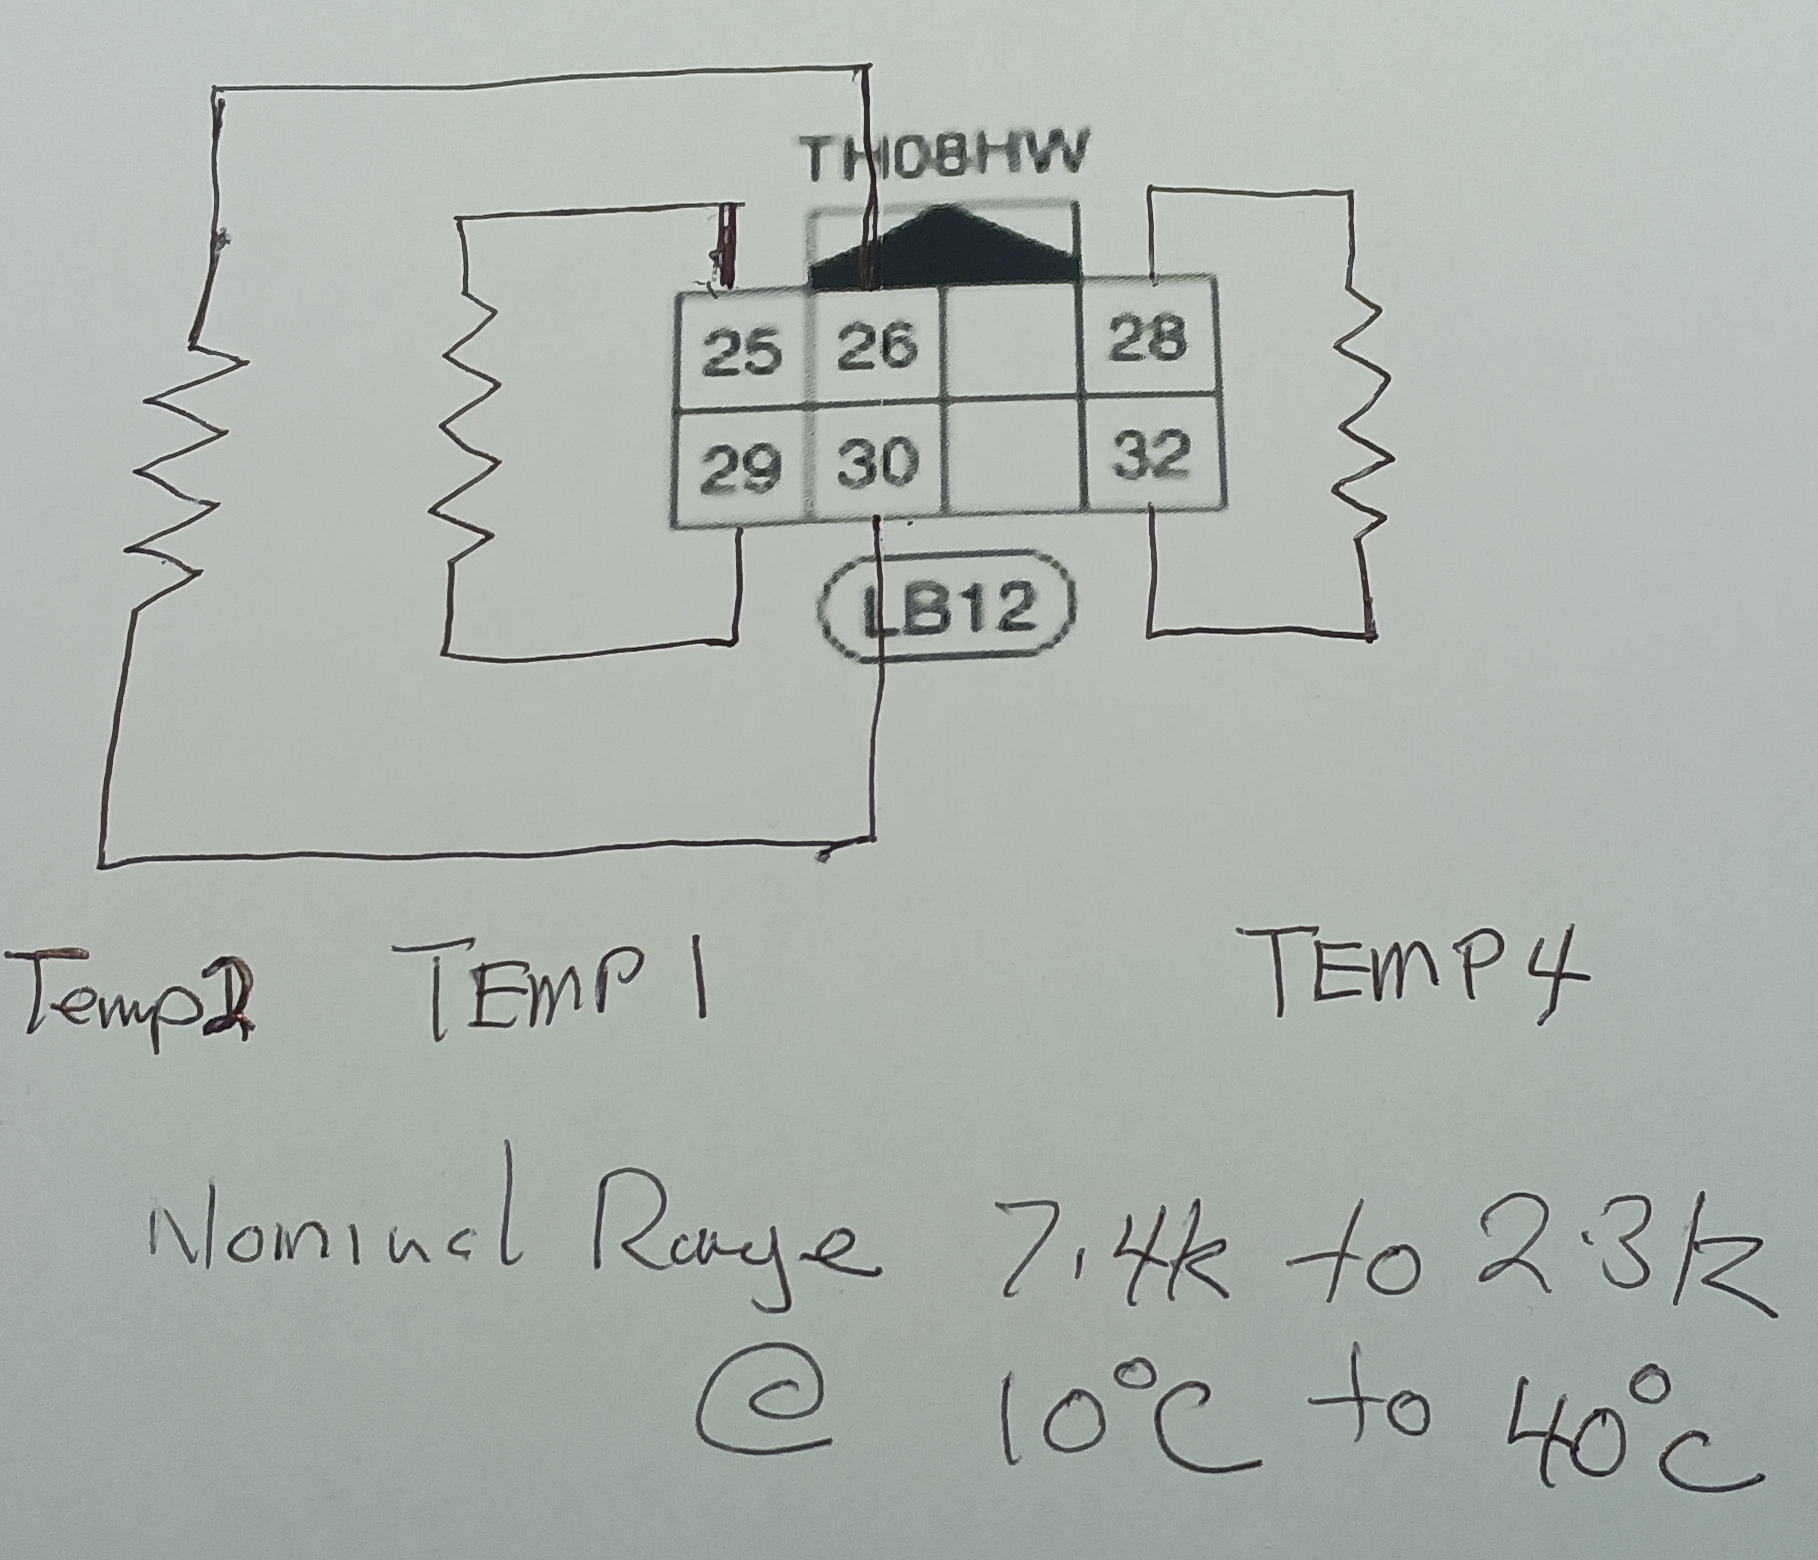 TH08HW
25 26 28
29 30 32
LB12
Temp2 TEMP1 TEMP4
Nominal Range 7.4k to 2.3k
@ 10°C to 40°C